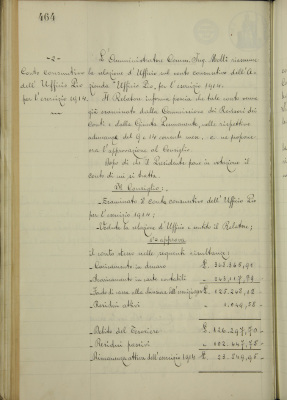 464
- 2 -
Conto Consuntivo
dell'Ufficio Pio
per l'esercizio 1914.
L'Amministratore Comm. Ing. Molli riassume
la relazione d'Ufficio sul conto consuntivo dell'A-
zienda "Ufficio Pio, per l'esercizio 1914.
Il Relatore informa poscia che tale conto venne
già esaminato dalla Commissione dei Revisori dei
Conti e dalla Giunta Permanente, nelle rispettive
adunanze del 9 e 14 corrente mese, e ne propone
ora l'approvazione al Consiglio.
Dopo di che il Presidente pone in votazione il
conto di cui si tratta.
Il Consiglio;
Esaminato il conto consuntivo dell'Ufficio Pio
per l'esercizio 1914;
Veduta la relazione d'Ufficio e sentito il Relatore;
approva
il conto stesso nelle seguenti risultanze:
Caricamento in denaro
Scaricamento in carte contabili
Fondo di cassa alla chiusura dell'esercizio
Residui attivi
Debito del Tesoriere £. 126.297,70
Residui passivi 102.747,75
Rimanenza attiva dell'esercizio 1914 £. 23.549,95